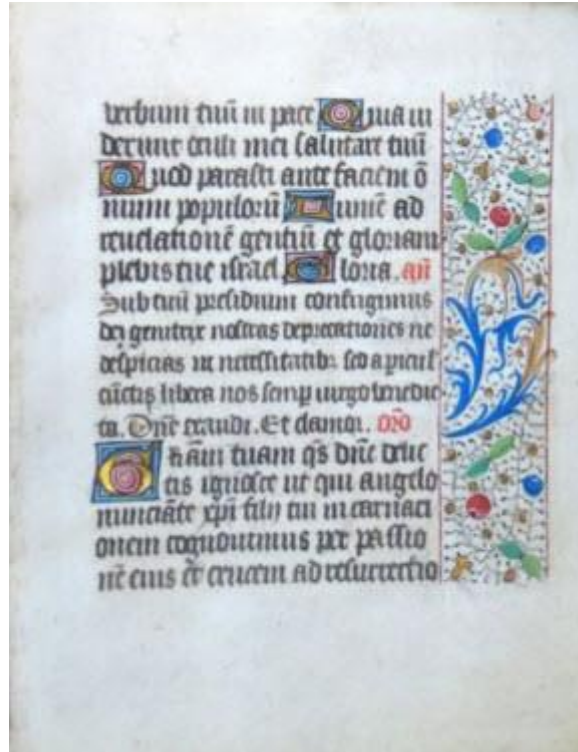 verbum tuū in pace Quia vi
derunt oculi mei salutare tuū
Quod parasti ante faciem ō
nium populorū Lumē ad
reuelationē gentiū et gloriam
plebis tue israel. Gloria. añ
Sub tuū presidium confugimus
dei genitrix nostras deprecationes ne
despicias in necessitatib; sed a picul
cūctis libera nos semp uirgo benedic
ta. Dñe exaudi. Et clamor. Orō
Grām tuam qs dñe
tis ut qui angelo
nunciāte xpi filij tui incarnaci
onem cognouimus per passio
nē eius et crucem ad resurrectio